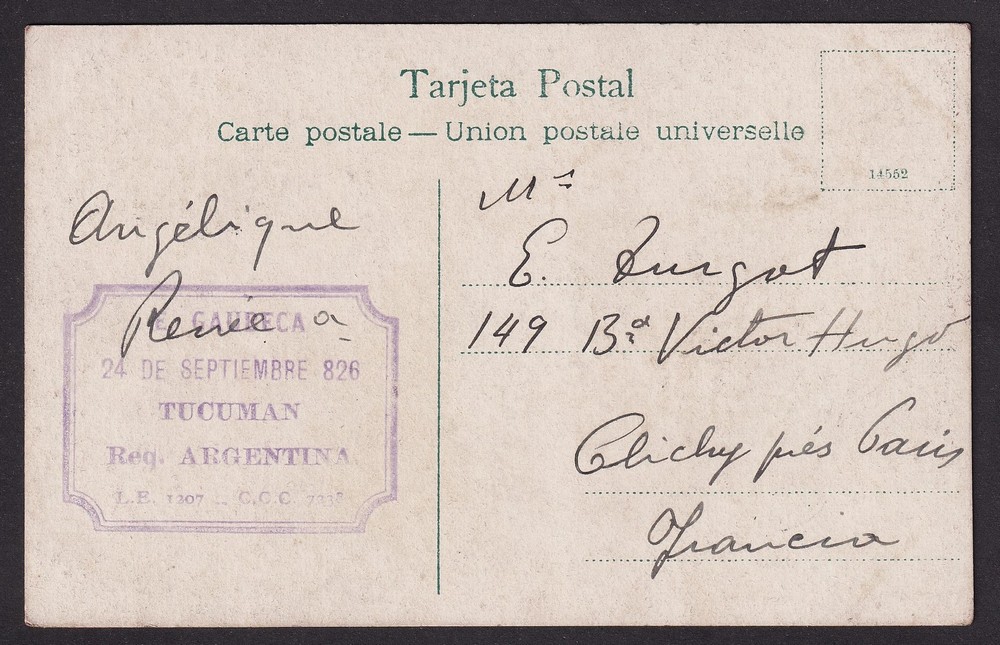 Tarjeta Postal
Carte postale — Union postale universelle
14552
Angélique
Renée a
E. GAUDECA
24 DE SEPTIEMBRE 826
TUCUMAN
Rep. ARGENTINA
L.E. 1207 - C.C.C.
Mr
E. Turgot
149 Bd Victor Hugo
Clichy près Paris
Francia